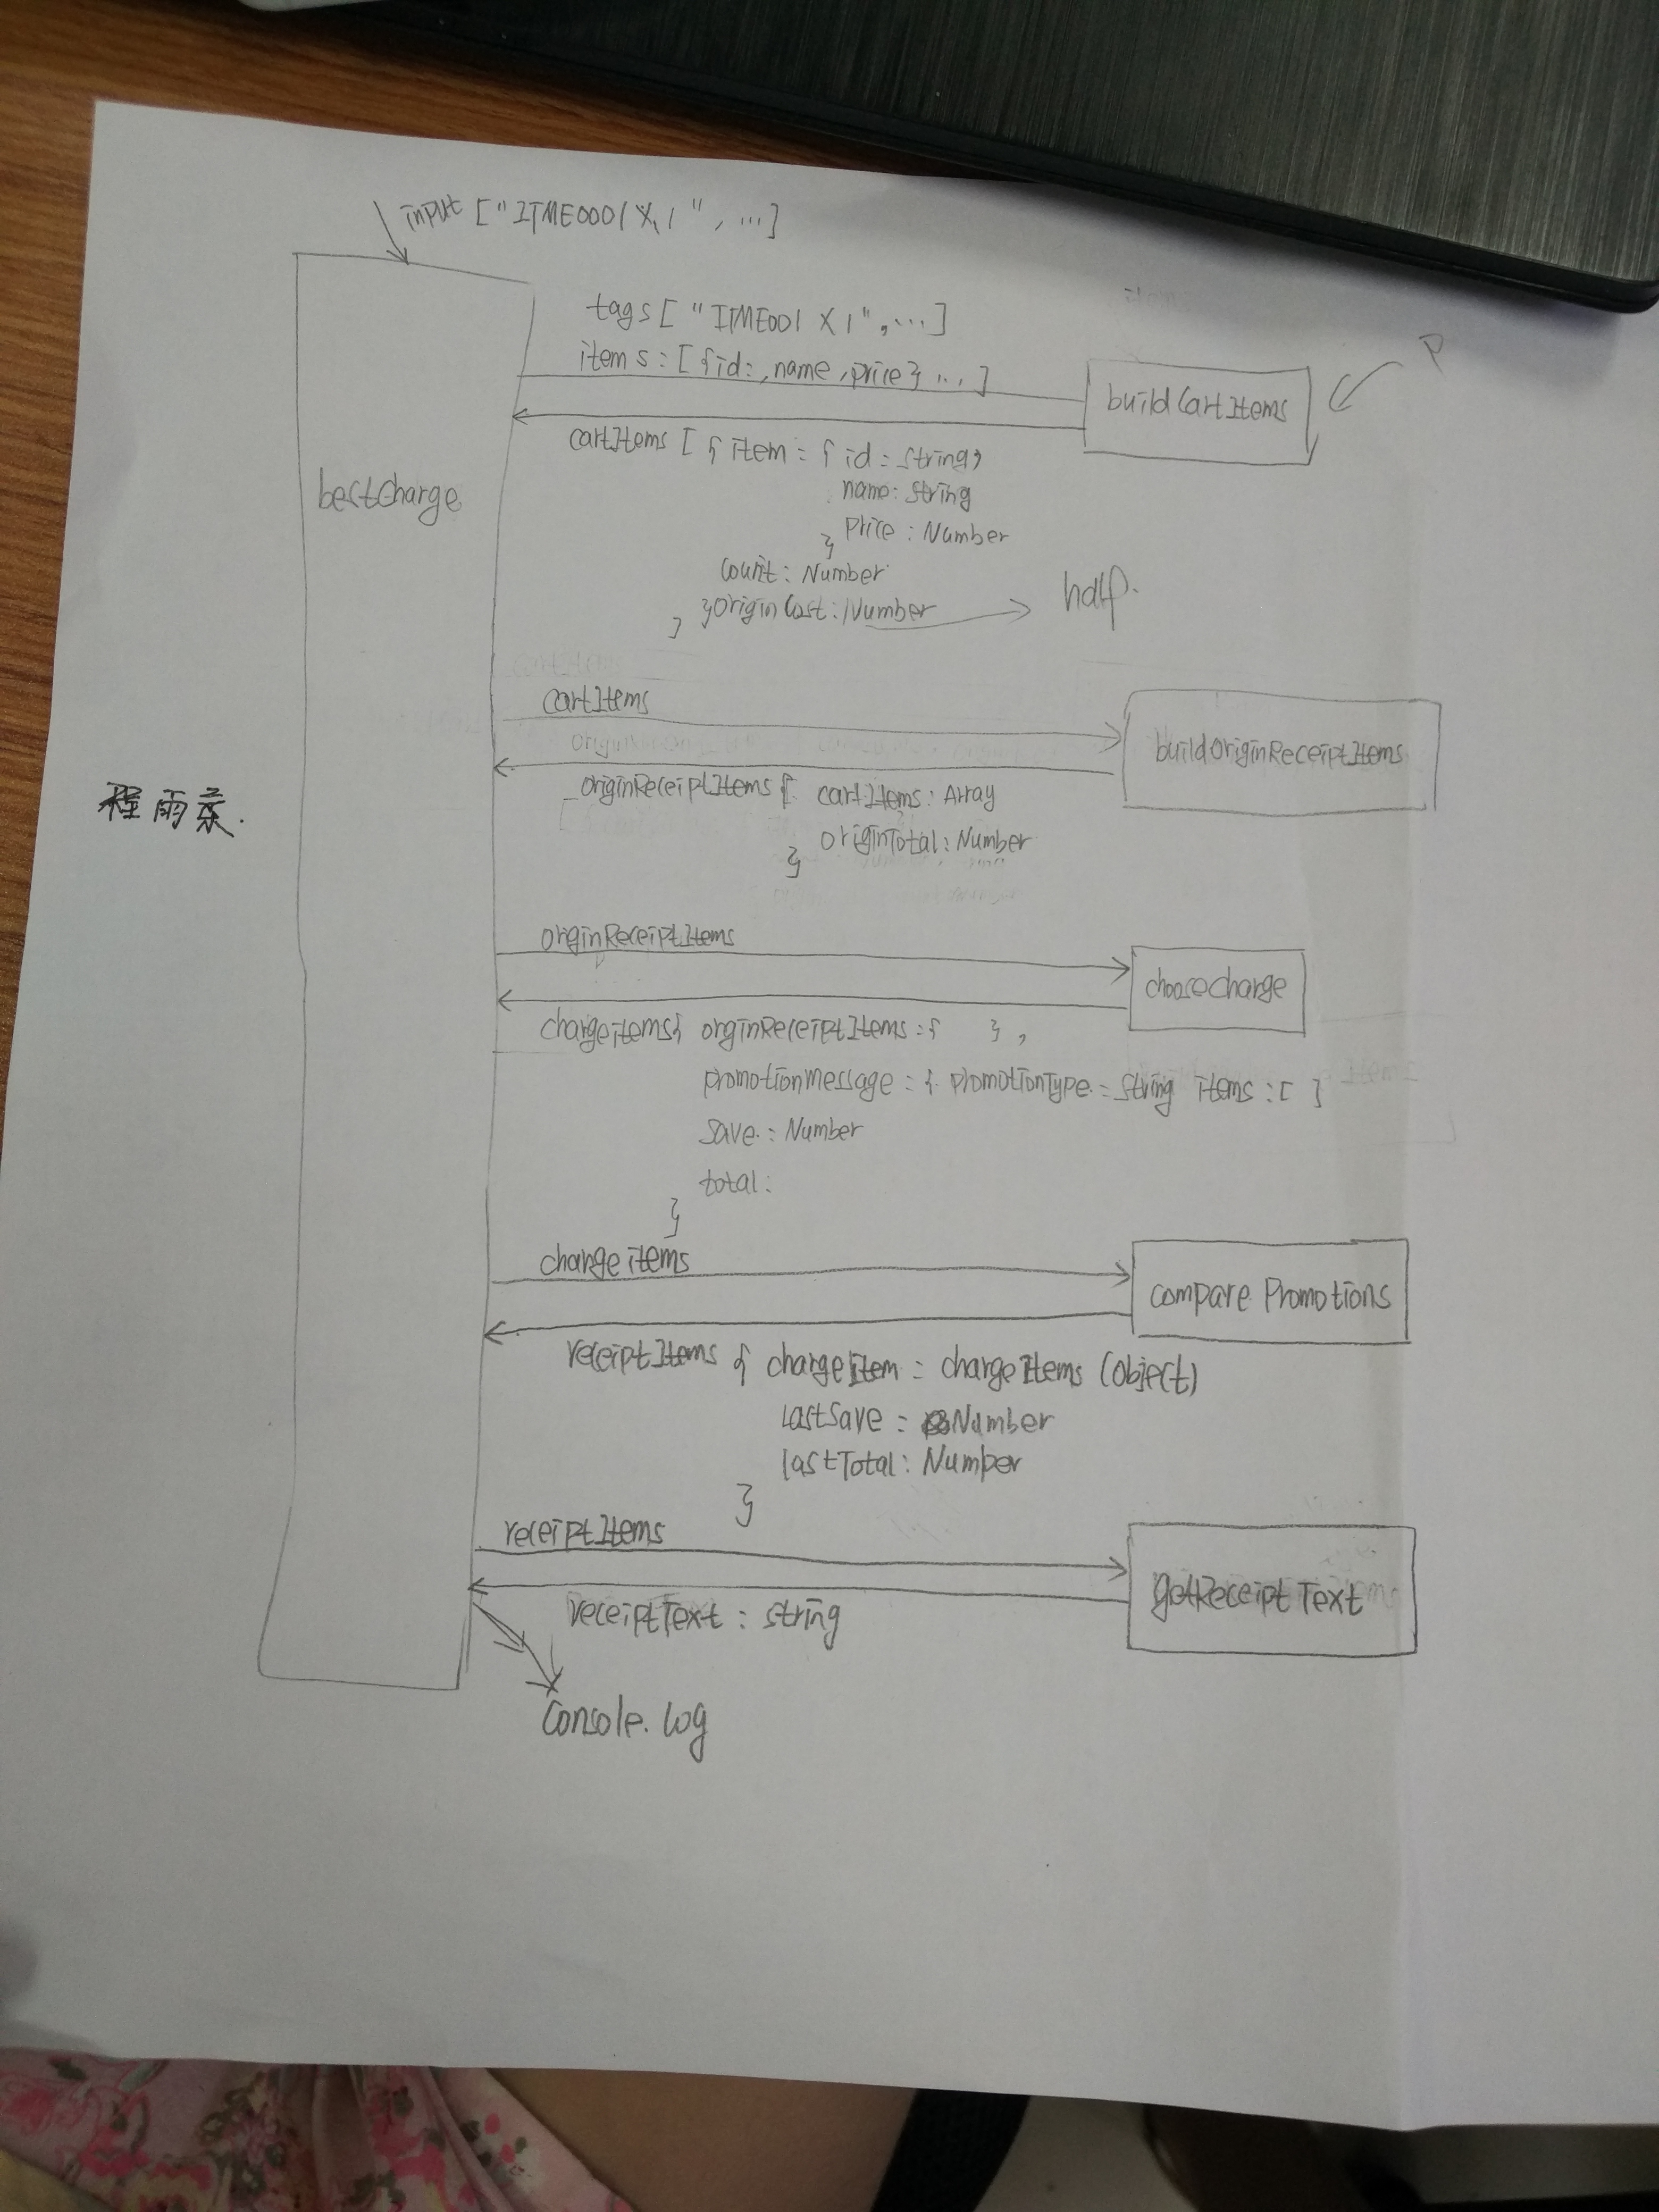 input ["ITME0001X1", ...]
tags ["ITME001 X 1", ...]
items: [{id:, name, price} ...]
buildCartItems
P
cartItems [ { item: { id: String,
name: String
Price: Number
}
count: Number
}originCost: Number
half.
]
bestcharge
cartItems
buildOriginReceiptItems
originReceiptItems { cartItems: Array
originTotal: Number
}
程雨
orginReceiptItems
choosecharge
chargeitems{ orginReceiptItems: { },
promotionMessage: { promotionType: String items: [ ]
save: Number
total:
}
chargeitems
compare Promotions
receiptItems { chargeItem: chargeItems (Object)
LastSave: Number
lastTotal: Number
}
receiptItems
getReceiptText
receiptText: string
Console.log